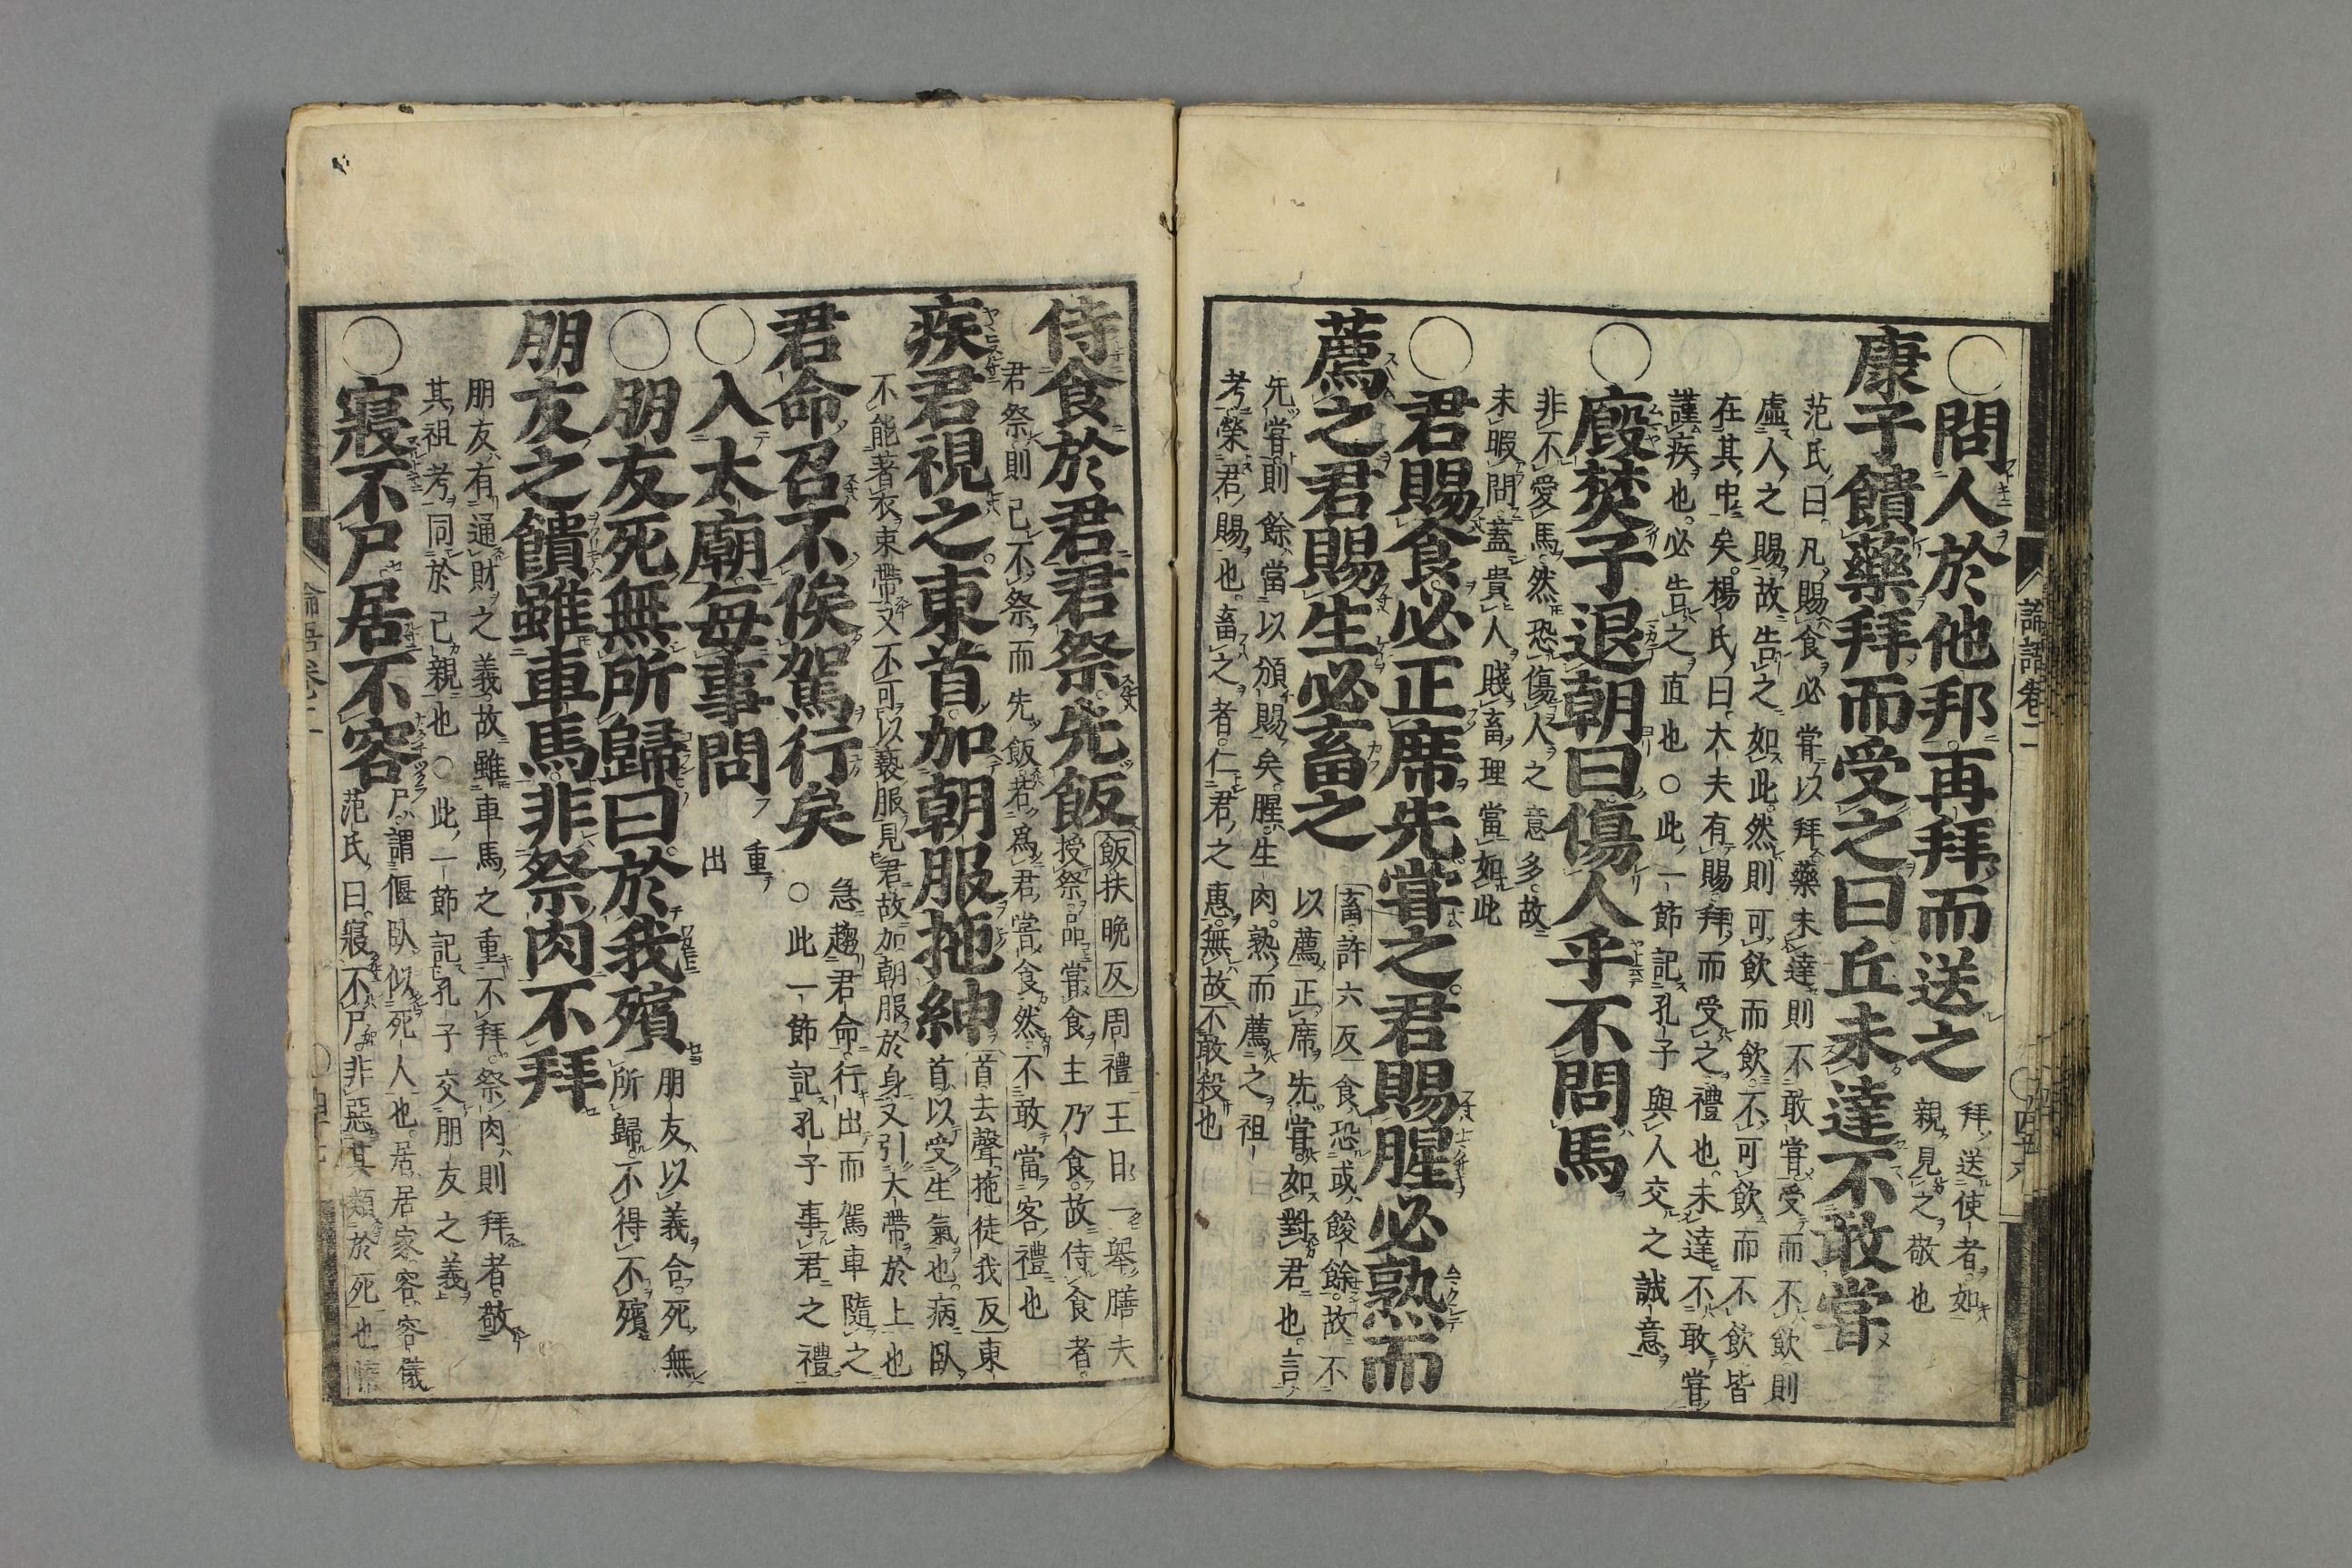 ○問人於他邦再拜而送之
拜送使者如
親見之敬也
康子饋藥拜而受之曰丘未達不敢嘗
范氏曰凡賜食必嘗以拜藥未達則不敢嘗受而不飲則
虛人之賜故告之如此然則可飲而飲不可飲而不飲皆
在其中矣楊氏曰大夫有賜拜而受之禮也未達不敢嘗
謹疾也必告之直也○此一節記孔子與人交之誠意
○廏焚子退朝曰傷人乎不問馬
非不愛馬然恐傷人之意多故
未暇問蓋貴人賤畜理當如此
○君賜食必正席先嘗之君賜腥必熟而
薦之君賜生必畜之
畜許六反食恐或餕餘故不
以薦正席先嘗如對君也言
先嘗則餘當以頒賜矣腥生肉熟而薦之祖
考榮君賜也畜之者仁君之惠無故不敢殺也
論語卷二
侍食於君君祭先飯
飯扶晚反周禮王日一舉膳夫
授祭品嘗食主乃食故侍食者
君祭則己不祭而先飯若爲君嘗食然不敢當客禮也
疾君視之東首加朝服拖紳
首去聲拖徒我反東
首以受生氣也病臥
不能著衣束帶又不可以褻服見君故加朝服於身又引大帶於上也
君命召不俟駕行矣
急趨君命行出而駕車隨之
○此一節記孔子事君之禮
○入太廟每事問
重
出
○朋友死無所歸曰於我殯
朋友以義合死無
所歸不得不殯
朋友之饋雖車馬非祭肉不拜
朋友有通財之義故雖車馬之重不拜祭肉則拜者敬
其祖考同於己親也○此一節記孔子交朋友之義
○寢不尸居不容
尸謂偃臥似死人也居居家容容儀
范氏曰寢不尸非惡其類於死也惰
論語卷二